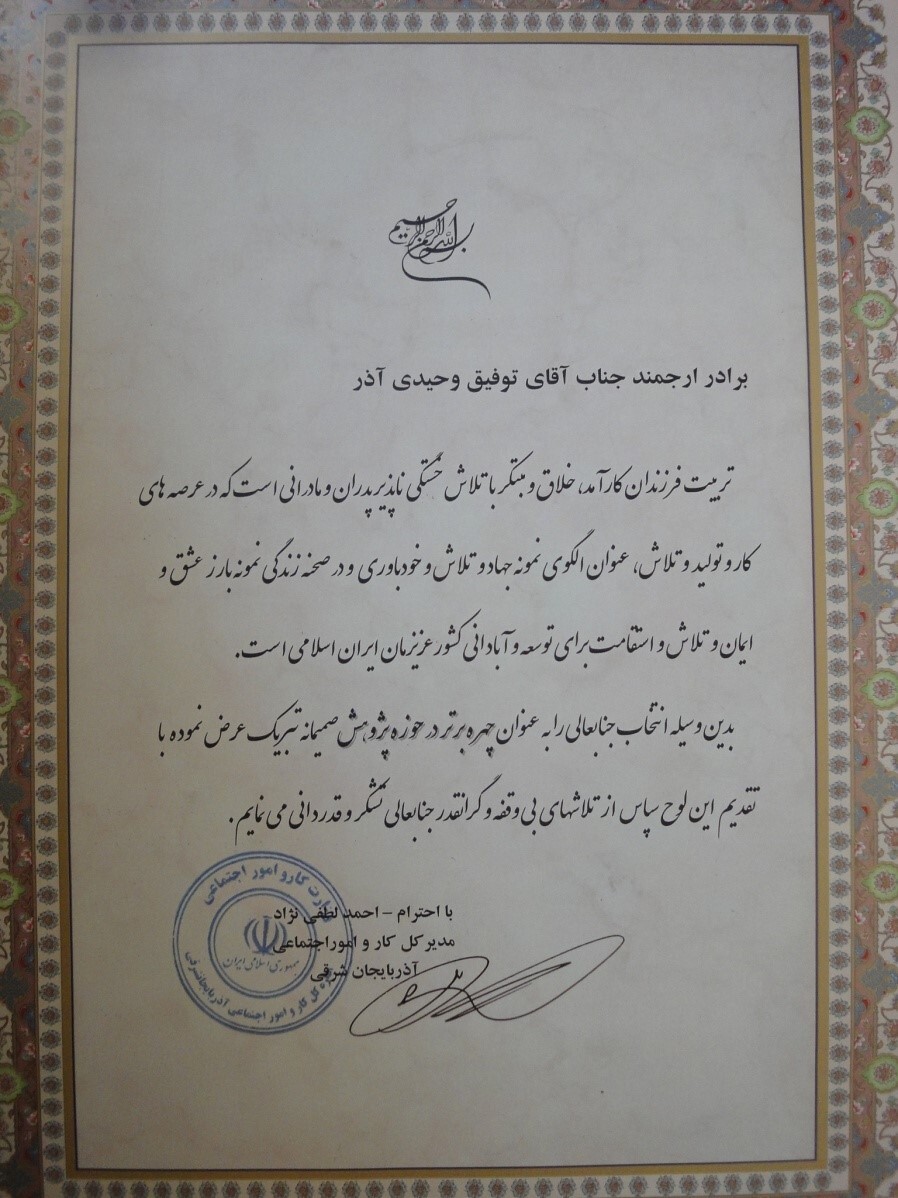 بسم الله الرحمن الرحیم
برادر ارجمند جناب آقای توفیق وحیدی آذر
تربیت فرزندان کارآمد، خلاق و مبتکر با تلاش خستگی ناپذیر پدران و مادرانی است که در عرصه های
کار و تولید و تلاش، عنوان الگوی نمونه جهاد و تلاش و خودباوری و در صحنه زندگی نمونه بارز عشق و
ایمان و تلاش و استقامت برای توسعه و آبادانی کشور عزیزمان ایران اسلامی است.
بدین وسیله انتخاب جنابعالی را به عنوان چهره برتر در حوزه پژوهش صمیمانه تبریک عرض نموده با
تقدیم این لوح سپاس از تلاشهای بی وقفه و گرانقدر جنابعالی تشکر و قدردانی می نمایم.
با احترام - احمد لطفی نژاد
مدیر کل کار و امور اجتماعی
آذربایجان شرقی
وزارت کار و امور اجتماعی
جمهوری اسلامی ایران
اداره کل کار و امور اجتماعی آذربایجانشرقی